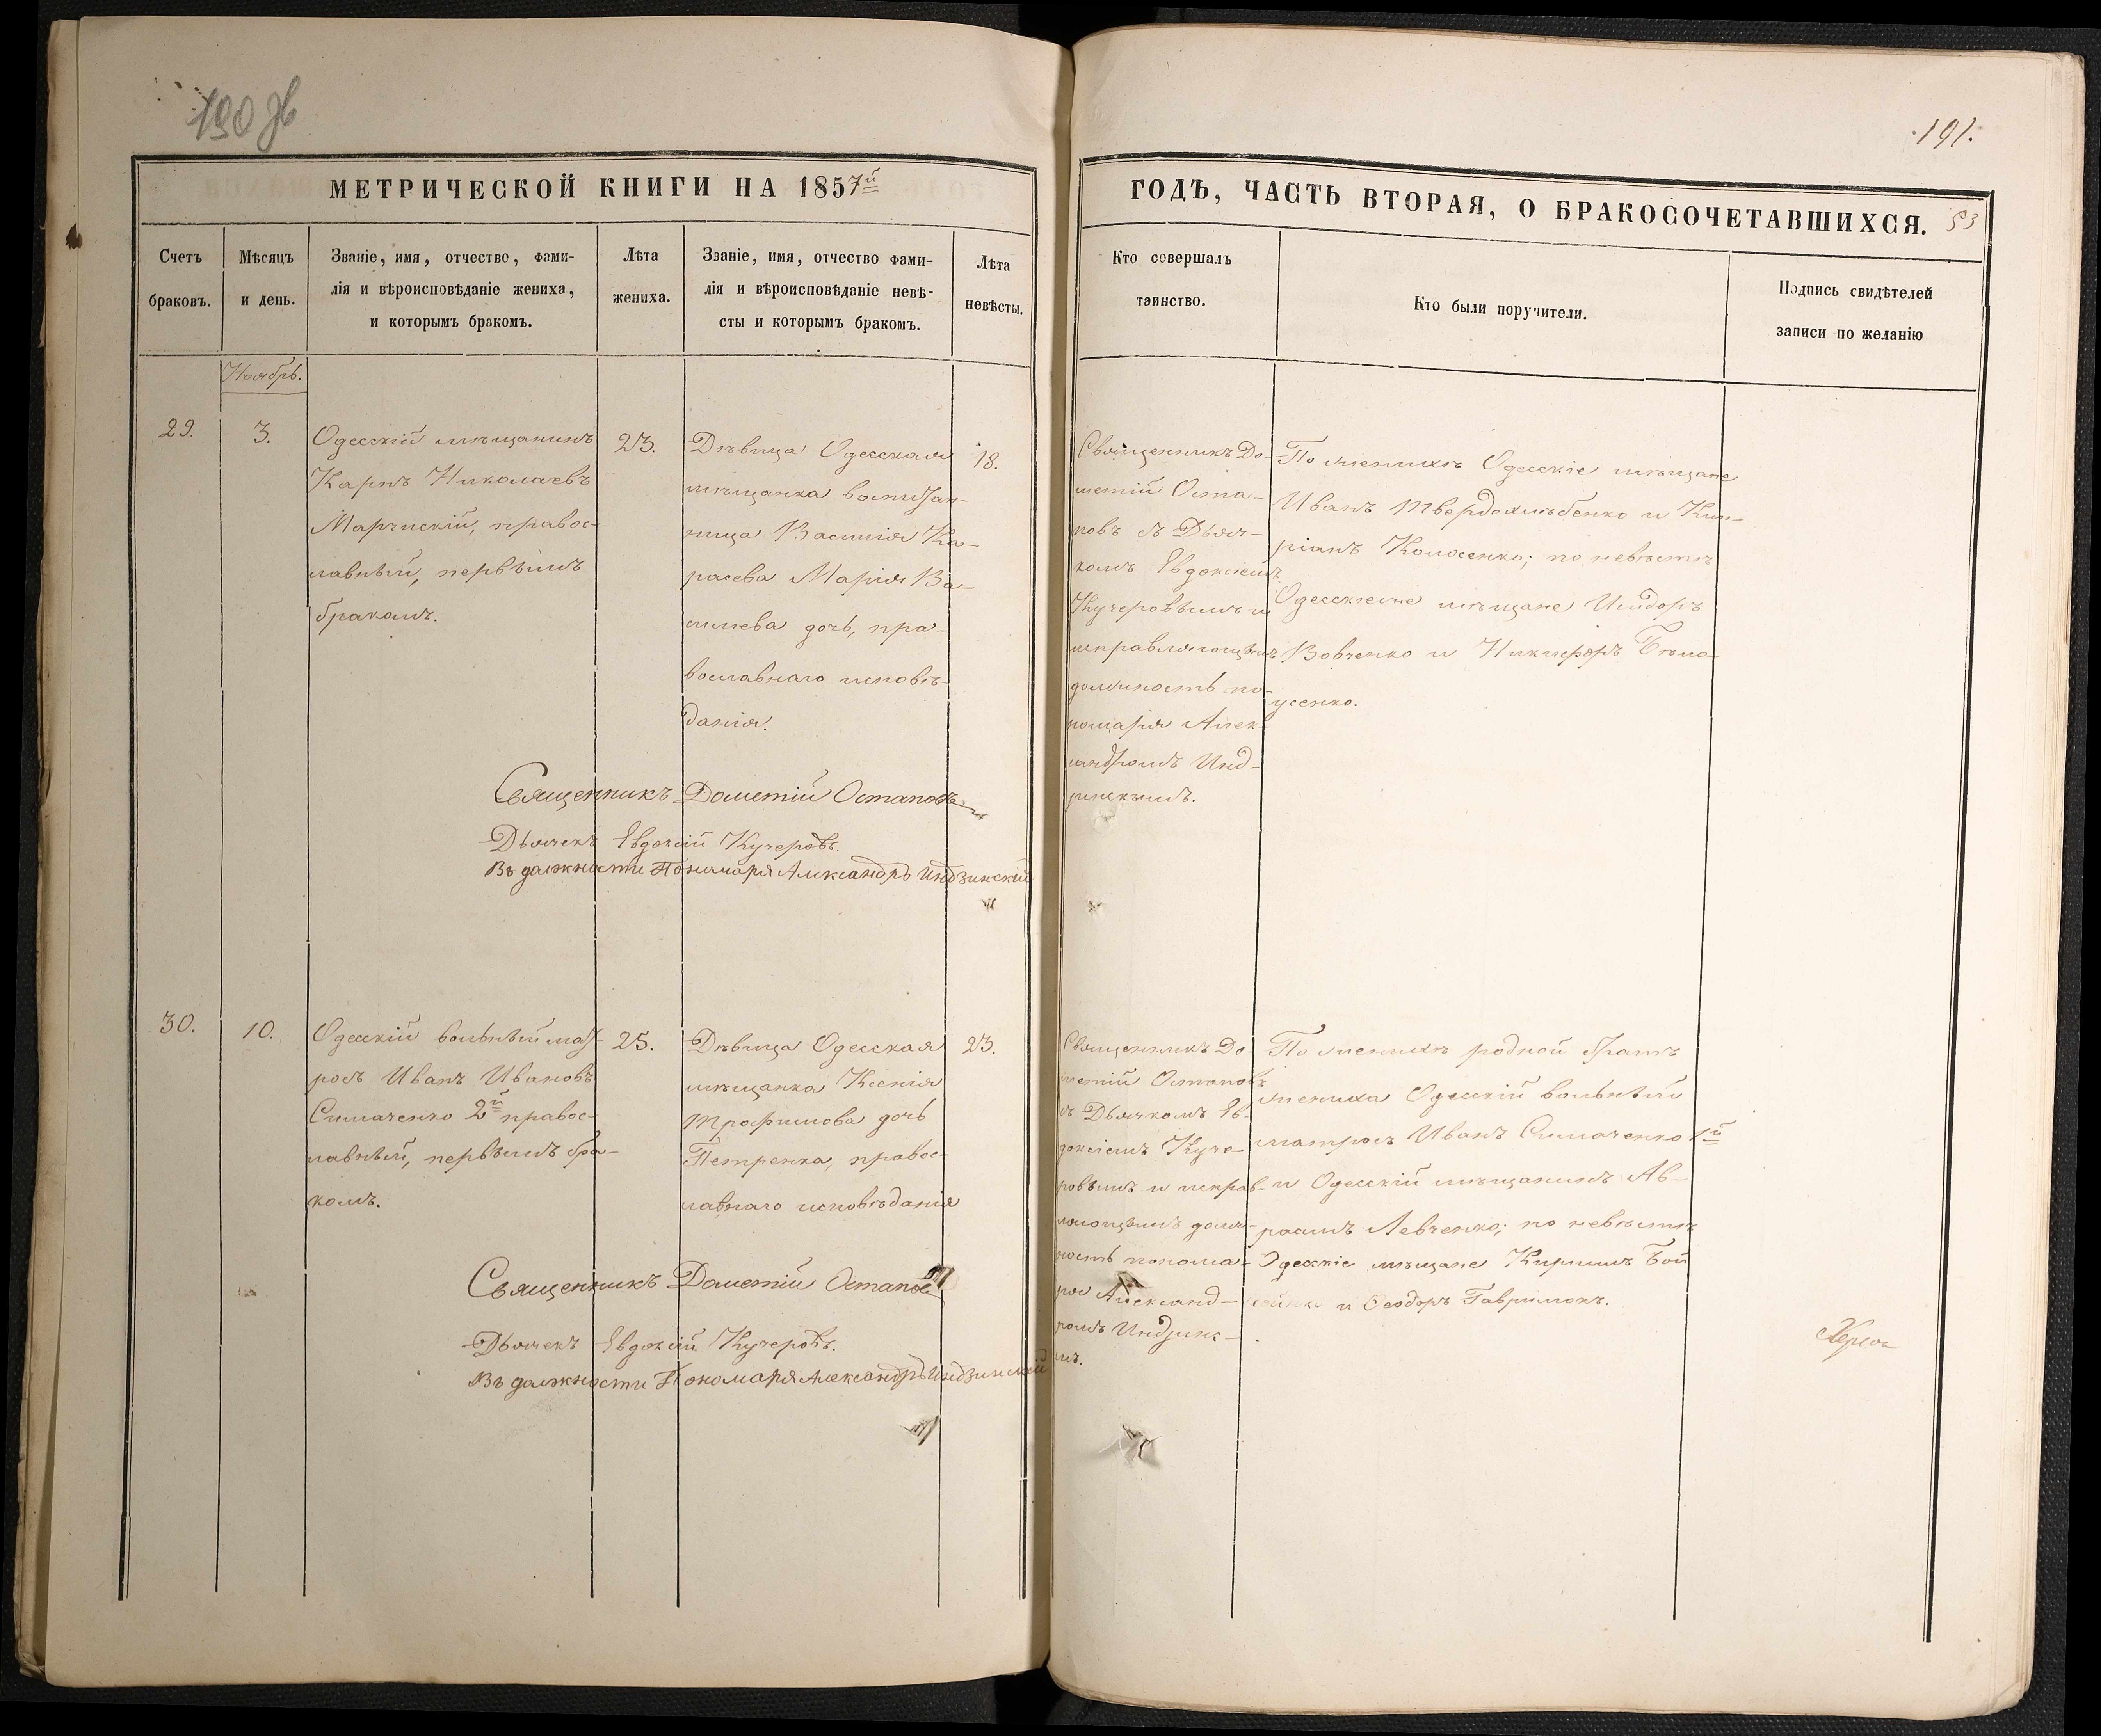 190 об
191.
МЕТРИЧЕСКОЙ КНИГИ НА 1857й
ГОДѢ, ЧАСТЬ ВТОРАЯ, О БРАКОСОЧЕТАВШИХСЯ. 53
Счетъ
браковъ.
Мѣсяцъ
и день.
Званіе, имя, отчество, фами-
лія и вѣроисповѣданіе жениха,
и которымъ бракомъ.
Лѣта
жениха.
Званіе, имя, отчество фами-
лія и вѣроисповѣданіе невѣ-
сты и которымъ бракомъ.
Лѣта
невѣсты.
Кто совершалъ
таинство.
Кто были поручители.
Подпись свидѣтелей
записи по желанію
Ноябрь.
29.
3.
Одесскій мѣщанинъ
Карпъ Николаевъ
правос-
лавный, первымъ
бракомъ.
23.
Дѣвица Одесская
мѣщанка воспитан-
ница Василія Ка-
расева Марія Ва-
сильева дочь, пра-
вославнаго исповѣ-
данія.
18.
Священникъ До-
метій Оста-
повъ съ Дьяч-
комъ Евдокіемъ
Кучеровымъ и
исправляющимъ
должность по-
номаря Алек-
сандромъ Инд-
По женихѣ Одесскіе мѣщане
Иванъ Твердохлѣбенко и Кип-
ріанъ Колосенко; по невѣстѣ
мѣщане Исидоръ
Вовченко и Никифоръ Бѣло-
усенко.
Священникъ Дометій Остаповъ
Дьячекъ Евдокій Кучеровъ.
Въ должности Пономаря Александръ Индзинскій
30.
10.
Одесскій вольный мат-
росъ Иванъ Ивановъ
Симаченко 2й правос-
лавный, первымъ бра-
комъ.
25.
Дѣвица Одесская
мѣщанка Ксенія
Трофимова дочь
Петренка, правос-
лавнаго исповѣданія
23.
Священникъ До-
метій Остаповъ
съ Дьячкомъ Ев-
докіемъ Куче-
ровымъ и исправ-
ляющимъ долж-
ность понома-
ря Александ-
ромъ Индзинс-
По женихѣ родной братъ
жениха Одесскій вольный
матросъ Иванъ Симаченко 1й
и Одесскій мѣщанинъ Ав-
раамъ Левченко; по невѣстѣ
Одесскіе мѣщане Кириллъ Бой
и Ѳеодоръ Гаврилюкъ.
Священникъ Дометій Остаповъ
Дьячекъ Евдокій Кучеровъ.
Въ должности Пономаря Александръ Индзинскій